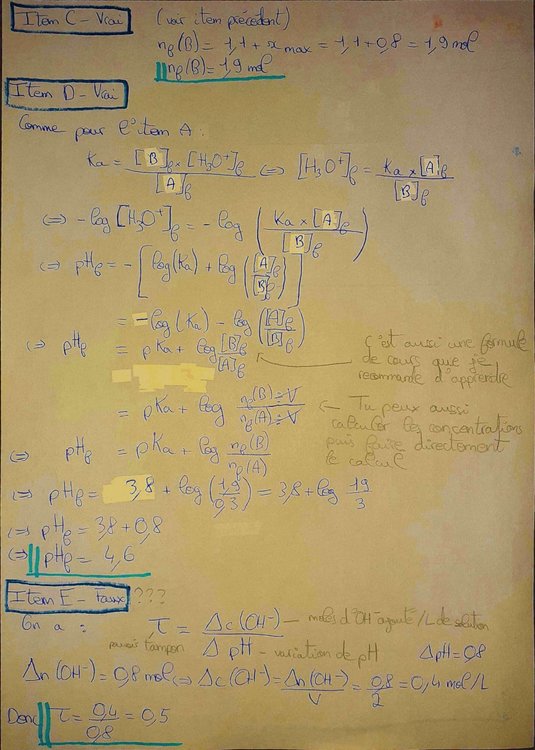 Item C - Vrai (voir item précédent)
n_f(B) = 1,1 + x max = 1,1 + 0,8 = 1,9 mol
n_f(B) = 1,9 mol
Item D - Vrai
Comme pour l'item A :
Ka = [B]_f × [H3O+]_f / [A]_f ⇔ [H3O+]_f = Ka × [A]_f / [B]_f
⇔ -log [H3O+]_f = -log ( Ka × [A]_f / [B]_f )
⇔ pH_f = - [ log(Ka) + log ( [A]_f / [B]_f ) ]
= -log (Ka) - log ( [A]_f / [B]_f )
⇔ pH_f = pKa + log [B]_f / [A]_f
C'est aussi une formule
de cours que je
recommande d'apprendre
= pKa + log n_f(B) ÷ V / n_f(A) ÷ V
← Tu peux aussi
calculer les concentrations
puis faire directement
le calcul
⇔ pH_f = pKa + log n_f(B) / n_f(A)
⇔ pH_f = 3,8 + log ( 1,9 / 0,3 ) = 3,8 + log 19 / 3
⇔ pH_f = 3,8 + 0,8
⇔ pH_f = 4,6
Item E - Faux ???
On a : τ = Δc(OH-) / ΔpH
moles d'OH- ajouté / L de solution
pouvoir tampon
- variation de pH
ΔpH = 0,8
Δn(OH-) = 0,8 mol ⇔ Δc(OH-) = Δn(OH-) / V = 0,8 / 2 = 0,4 mol/L
Donc τ = 0,4 / 0,8 = 0,5